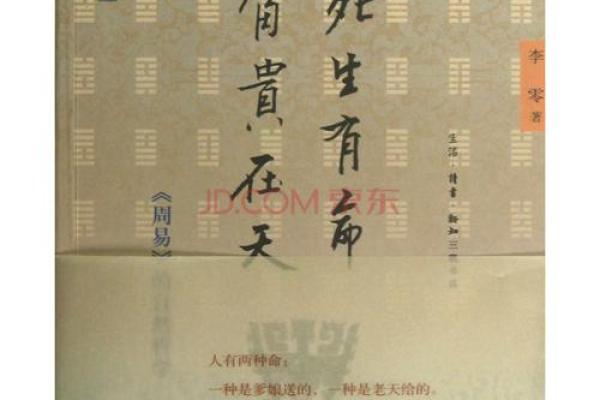 死生有命
富貴在天
李零 著
生活·讀書·新知三联书店
《周易》的自然哲学
JD.COM 京东
人有两种命：
一种是爹娘送的、一种是老天给的。